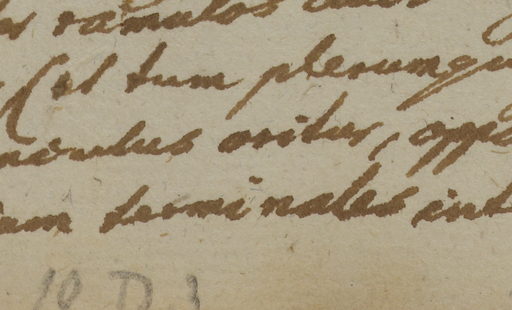 ramulos
(et tum plerumqu
nculus oritur, oppo
dum terminales int
18 D.